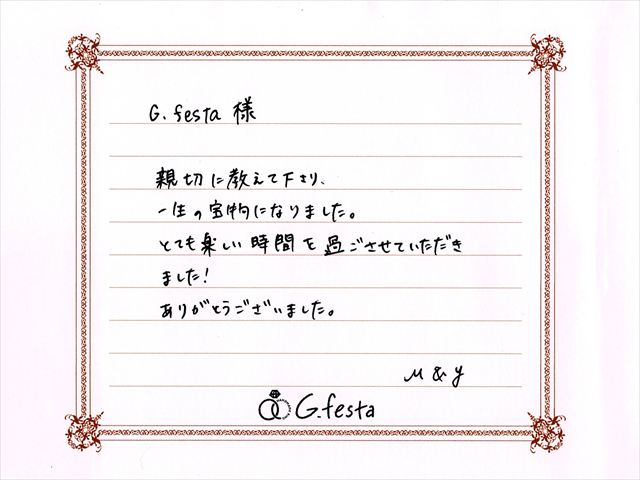 G.festa 様
親切に教えて下さり、
一生の宝物になりました。
とても楽しい時間を過ごさせていただき
ました!
ありがとうございました。
M & Y
G.festa